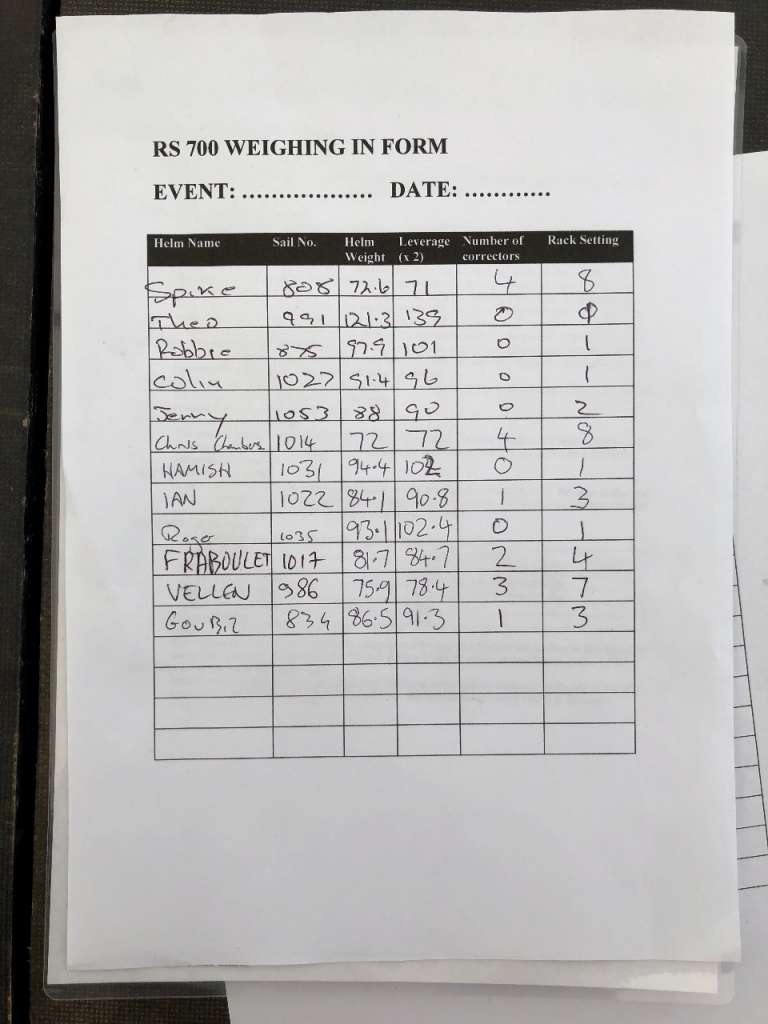 RS 700 WEIGHING IN FORM
EVENT: .................. DATE: ............
Helm Name Sail No. Helm Weight Leverage (x 2) Number of correctors Rack Setting
Spike 808 72.6 71 4 8
Theo 991 121.3 139 0 0
Robbie 875 97.9 101 0 1
Colin 1027 91.4 96 0 1
Jenny 1053 88 90 0 2
Chris 1014 72 72 4 8
HAMISH 1031 94.4 102 0 1
IAN 1022 84.1 90.8 1 3
Roger 1035 93.1 102.4 0 1
FRABOULET 1017 81.7 84.7 2 4
VELLEN 986 75.9 78.4 3 7
834 86.5 91.3 1 3